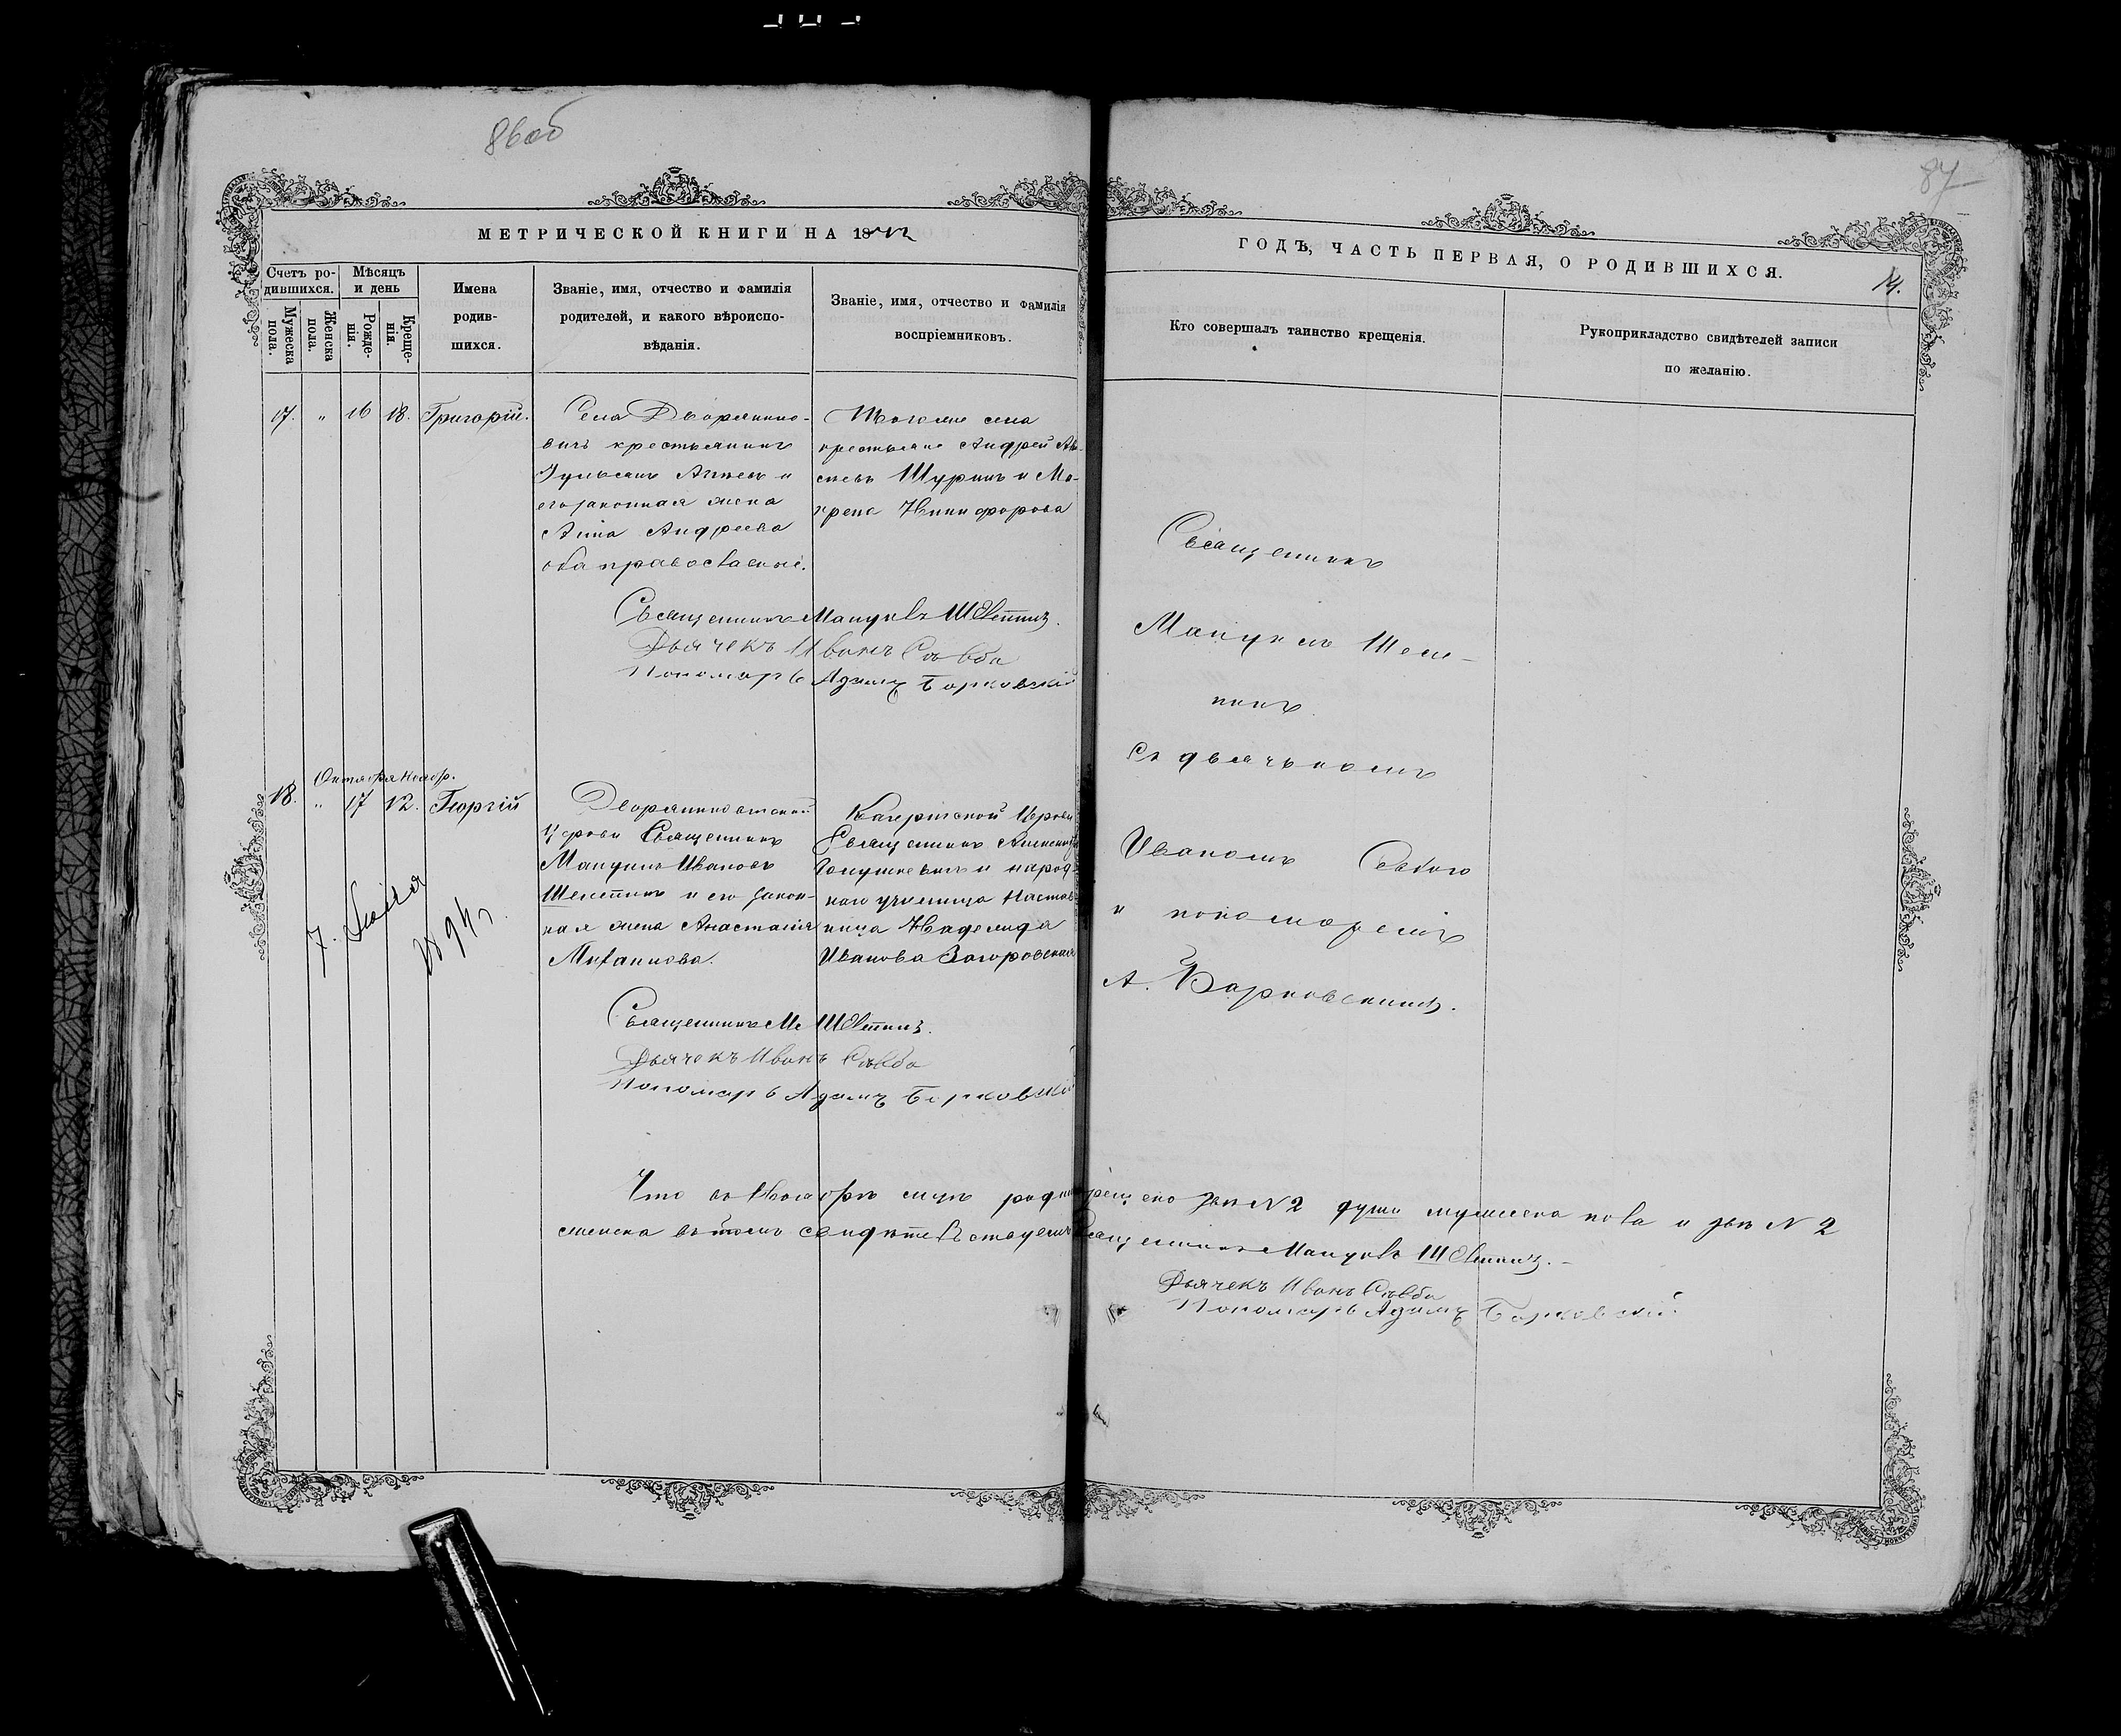 86об
87
МЕТРИЧЕСКОЙ КНИГИ НА 18
ГОДЪ, ЧАСТЬ ПЕРВАЯ, О РОДИВШИХСЯ.
14.
Счетъ ро-
дившихся.
Мужеска
пола.
Женска
пола.
Мѣсяцъ
и день
Рожде-
нія.
Креще-
нія.
Имена
родив-
шихся.
Званіе, имя, отчество и фамилія
родителей, и какого вѣроиспо-
вѣданія.
Званіе, имя, отчество и фамилія
воспріемниковъ.
Кто совершалъ таинство крещенія.
Рукоприкладство свидѣтелей записи
по желанію.
17. " 16 18. Григорій.
Села Дворянино-
вичъ крестьянинъ
и
его законная жена
Анна Андреева
оба православные.
Тогоже села
крестьяне Андрей
Шуринъ и Мо-
крена Никифорова
Священникъ Мануилъ Шелепинъ.
Дьячекъ Иванъ
Пономарь Адамъ Барковскій
Октября Ноябр.
18. " 17 12. Георгій
Дворяниновичской
Церкви Священникъ
Мануилъ Ивановъ
Шелепинъ и его закон-
ная жена Анастасія
Михаилова.
Церкви
Священникъ
и народ-
наго училища Настав-
ница Надежда
Иванова Загоровская
7. Мая
1894 г.
Священникъ М. Шелепинъ.
Дьячекъ Иванъ
Пономарь Адамъ Барковскій
Священникъ
Мануилъ Шеле-
пинъ
съ дьячкомъ
Иваномъ
и пономаремъ
А. Барковскимъ.
Что въ Ноябрѣ мцѣ крещено № 2 души мужеска пола и № 2
женска въ томъ свидѣтельствуемъ Священникъ Мануилъ Шелепинъ.
Дьячекъ Иванъ
Пономарь Адамъ Барковскій